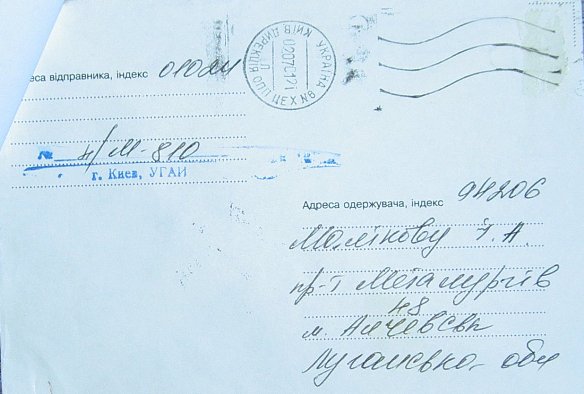 УКРАЇНА
КИЇВ ДИРЕКЦІЯ ОПП ЦЕХ №8
020704 1721
еса відправника, індекс 01024
№ н/М-810
г. Киев, УГАИ
Адреса одержувача, індекс 94206
Малікову І. А.
пр-т Металургів
48
м. Алчевськ
Луганська обл